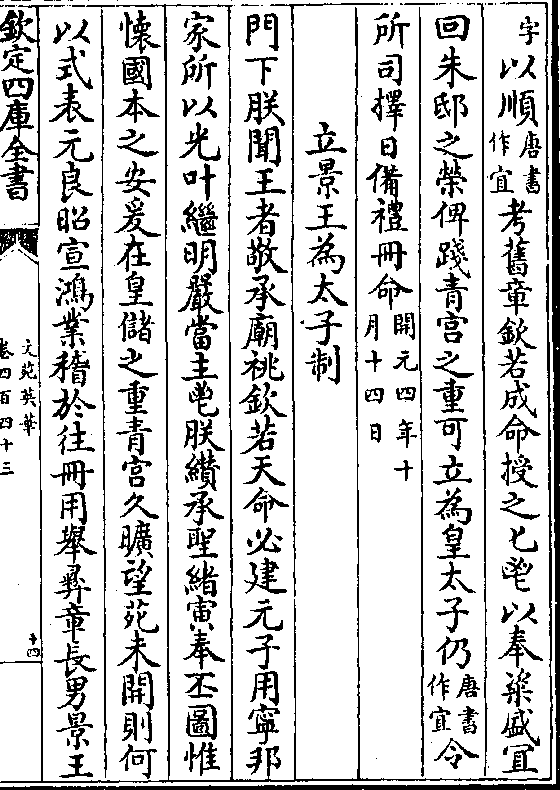 字以順唐書作宜考舊章欽若成命授之匕鬯以奉粢盛宜
回朱邸之榮俾踐青宫之重可立為皇太子仍唐書作宜令
所司擇日備禮冊命開元四年十月十四日
立景王為太子制
門下朕聞王者敬承廟祧欽若天命必建元子用寧邦
家所以光叶繼明嚴當主鬯朕纘承聖緒寅奉丕圖惟
懷國本之安爰在皇儲之重青宫久曠望苑未開則何
以式表元良昭宣鴻業稽於往冊用舉彛章長男景王
欽定四庫全書
文苑英華
卷四百四十三
十四